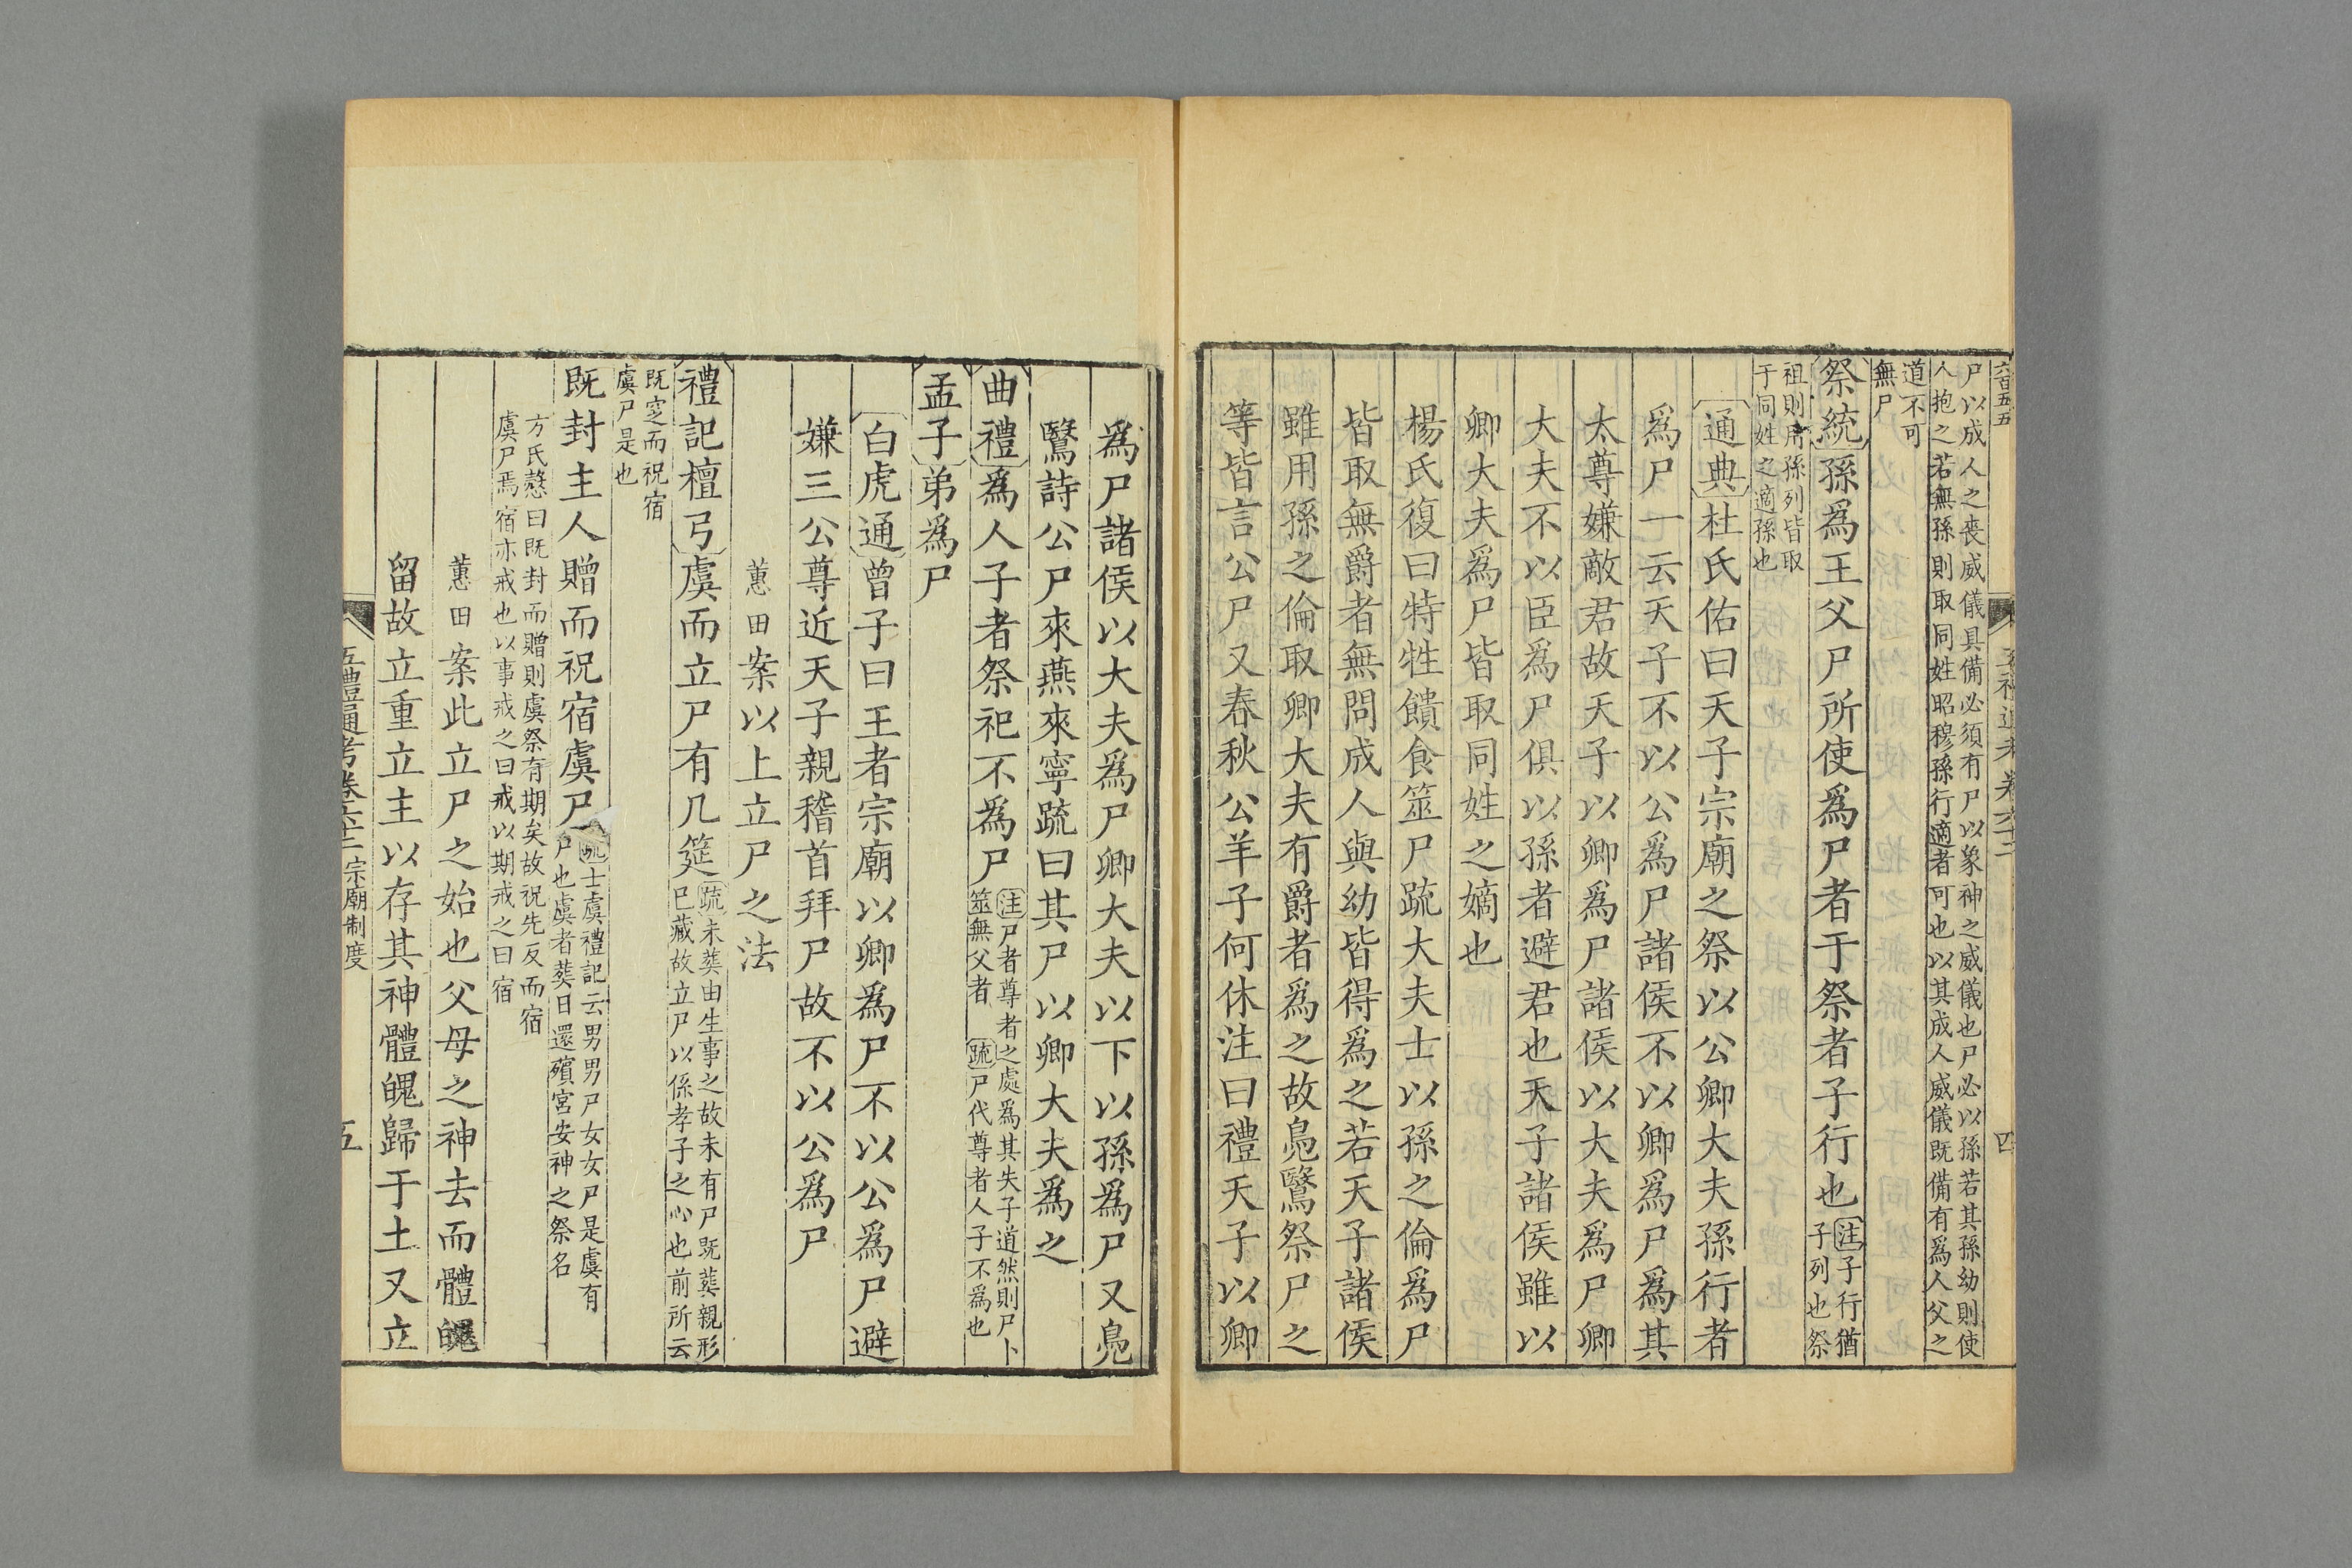 六百五五
尸以成人之喪威儀具備必須有尸以象神之威儀也尸必以孫若其孫幼則使
人抱之若無孫則取同姓昭穆孫行適者可也以其成人威儀既備有爲人父之
道不可
無尸
祭統孫爲王父尸所使爲尸者于祭者子行也注子行猶
子列也祭
祖則用孫列皆取
于同姓之適孫也
通典杜氏佑曰天子宗廟之祭以公卿大夫孫行者
爲尸一云天子不以公爲尸諸侯不以卿爲尸爲其
太尊嫌敵君故天子以卿爲尸諸侯以大夫爲尸卿
大夫不以臣爲尸俱以孫者避君也天子諸侯雖以
卿大夫爲尸皆取同姓之嫡也
楊氏復曰特牲饋食筮尸疏大夫士以孫之倫爲尸
皆取無爵者無問成人與幼皆得爲之若天子諸侯
雖用孫之倫取卿大夫有爵者爲之故鳧鷖祭尸之
等皆言公尸又春秋公羊子何休注曰禮天子以卿
四
爲尸諸侯以大夫爲尸卿大夫以下以孫爲尸又鳧
鷖詩公尸來燕來寧疏曰其尸以卿大夫爲之
曲禮爲人子者祭祀不爲尸注尸者尊者之處爲其失子道然則尸卜
筮無父者　疏尸代尊者人子不爲也
孟子弟爲尸
白虎通曾子曰王者宗廟以卿爲尸不以公爲尸避
嫌三公尊近天子親稽首拜尸故不以公爲尸
蕙田案以上立尸之法
禮記檀弓虞而立尸有几筵疏未葬由生事之故未有尸既葬親形
已藏故立尸以係孝子之心也前所云
既窆而祝宿
虞尸是也
既封主人贈而祝宿虞尸疏士虞禮記云男男尸女女尸是虞有
尸也虞者葬日還殯宮安神之祭名
方氏愨曰既封而贈則虞祭有期矣故祝先反而宿
虞尸焉宿亦戒也以事戒之曰戒以期戒之曰宿
蕙田案此立尸之始也父母之神去而體魄
留故立重立主以存其神體魄歸于土又立
五禮通考卷六十二宗廟制度
五